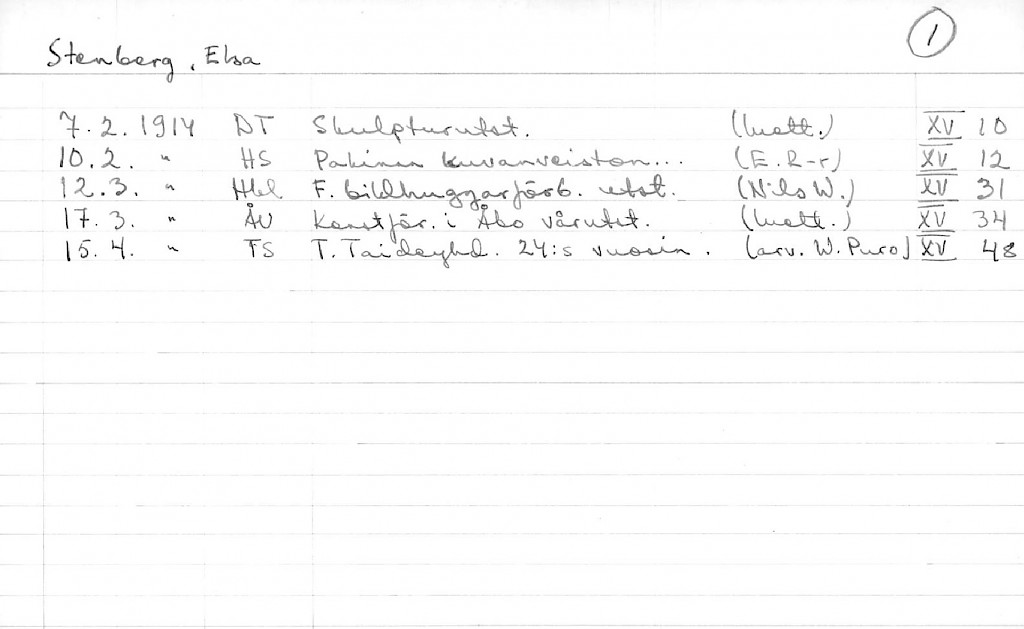 1
Stenberg, Elsa
7.2. 1914 DT Skulpturutst. (luett.) XV 10
10.2. " HS Pakinaa kuvanveiston... (E. R-r) XV 12
12.3. " Hbl F. bildhuggarförb. utst. (Nils W.) XV 31
17.3. " ÅU Konstför. i Åbo vårutst. (luett.) XV 34
15.4. " TS T. Taideyhd. 24:s vuosin. (arv. W. Puro) XV 48